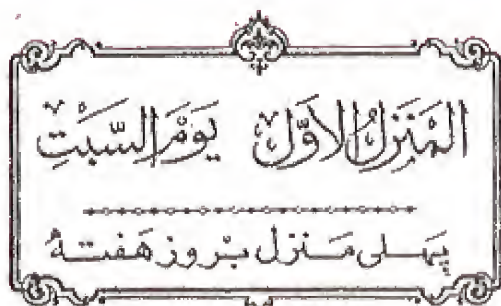 المَنْزِلُ الاَوَّل يَوْمَ السَّبْتِ
پہلی منزل بروز هفته